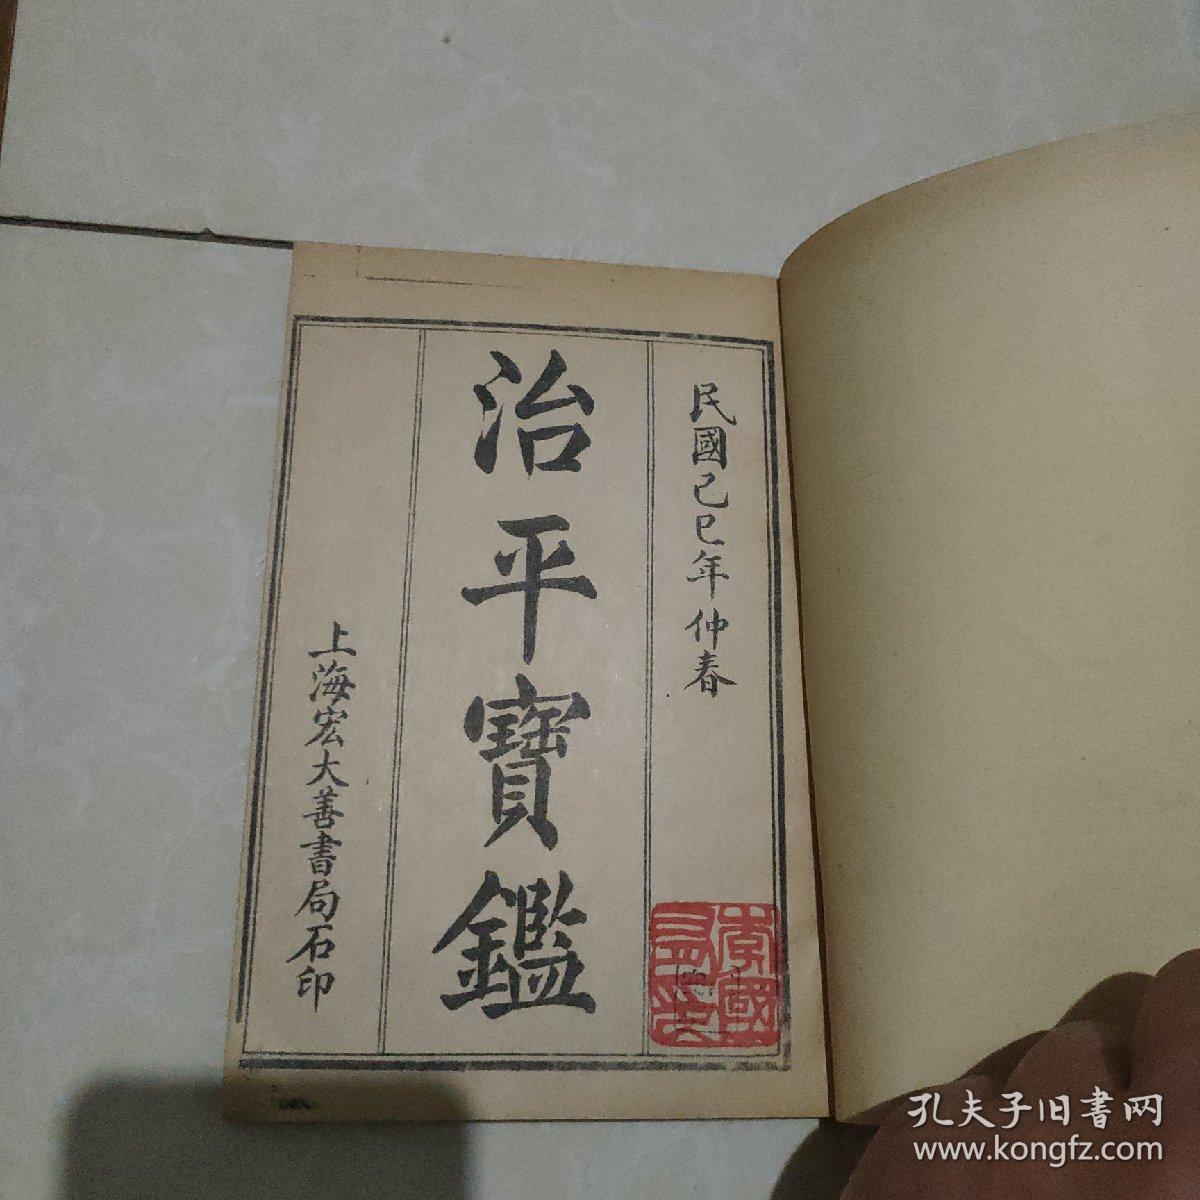 民國己巳年仲春
治平寶鑑
上海宏大善書局石印
孔夫子旧書网
www.kongfz.com